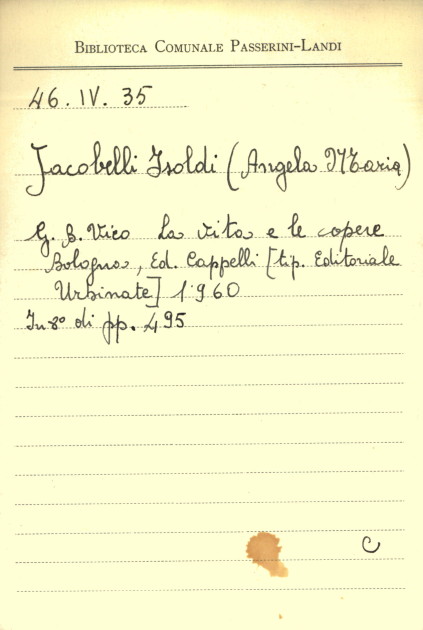 Biblioteca Comunale Passerini-Landi
46. IV. 35
Jacobelli Isoldi (Angela Maria)
G. B. Vico La vita e le opere
Bologna, Ed. Cappelli [tip. Editoriale
Urbinate] 1960
In 8° di pp. 495
C